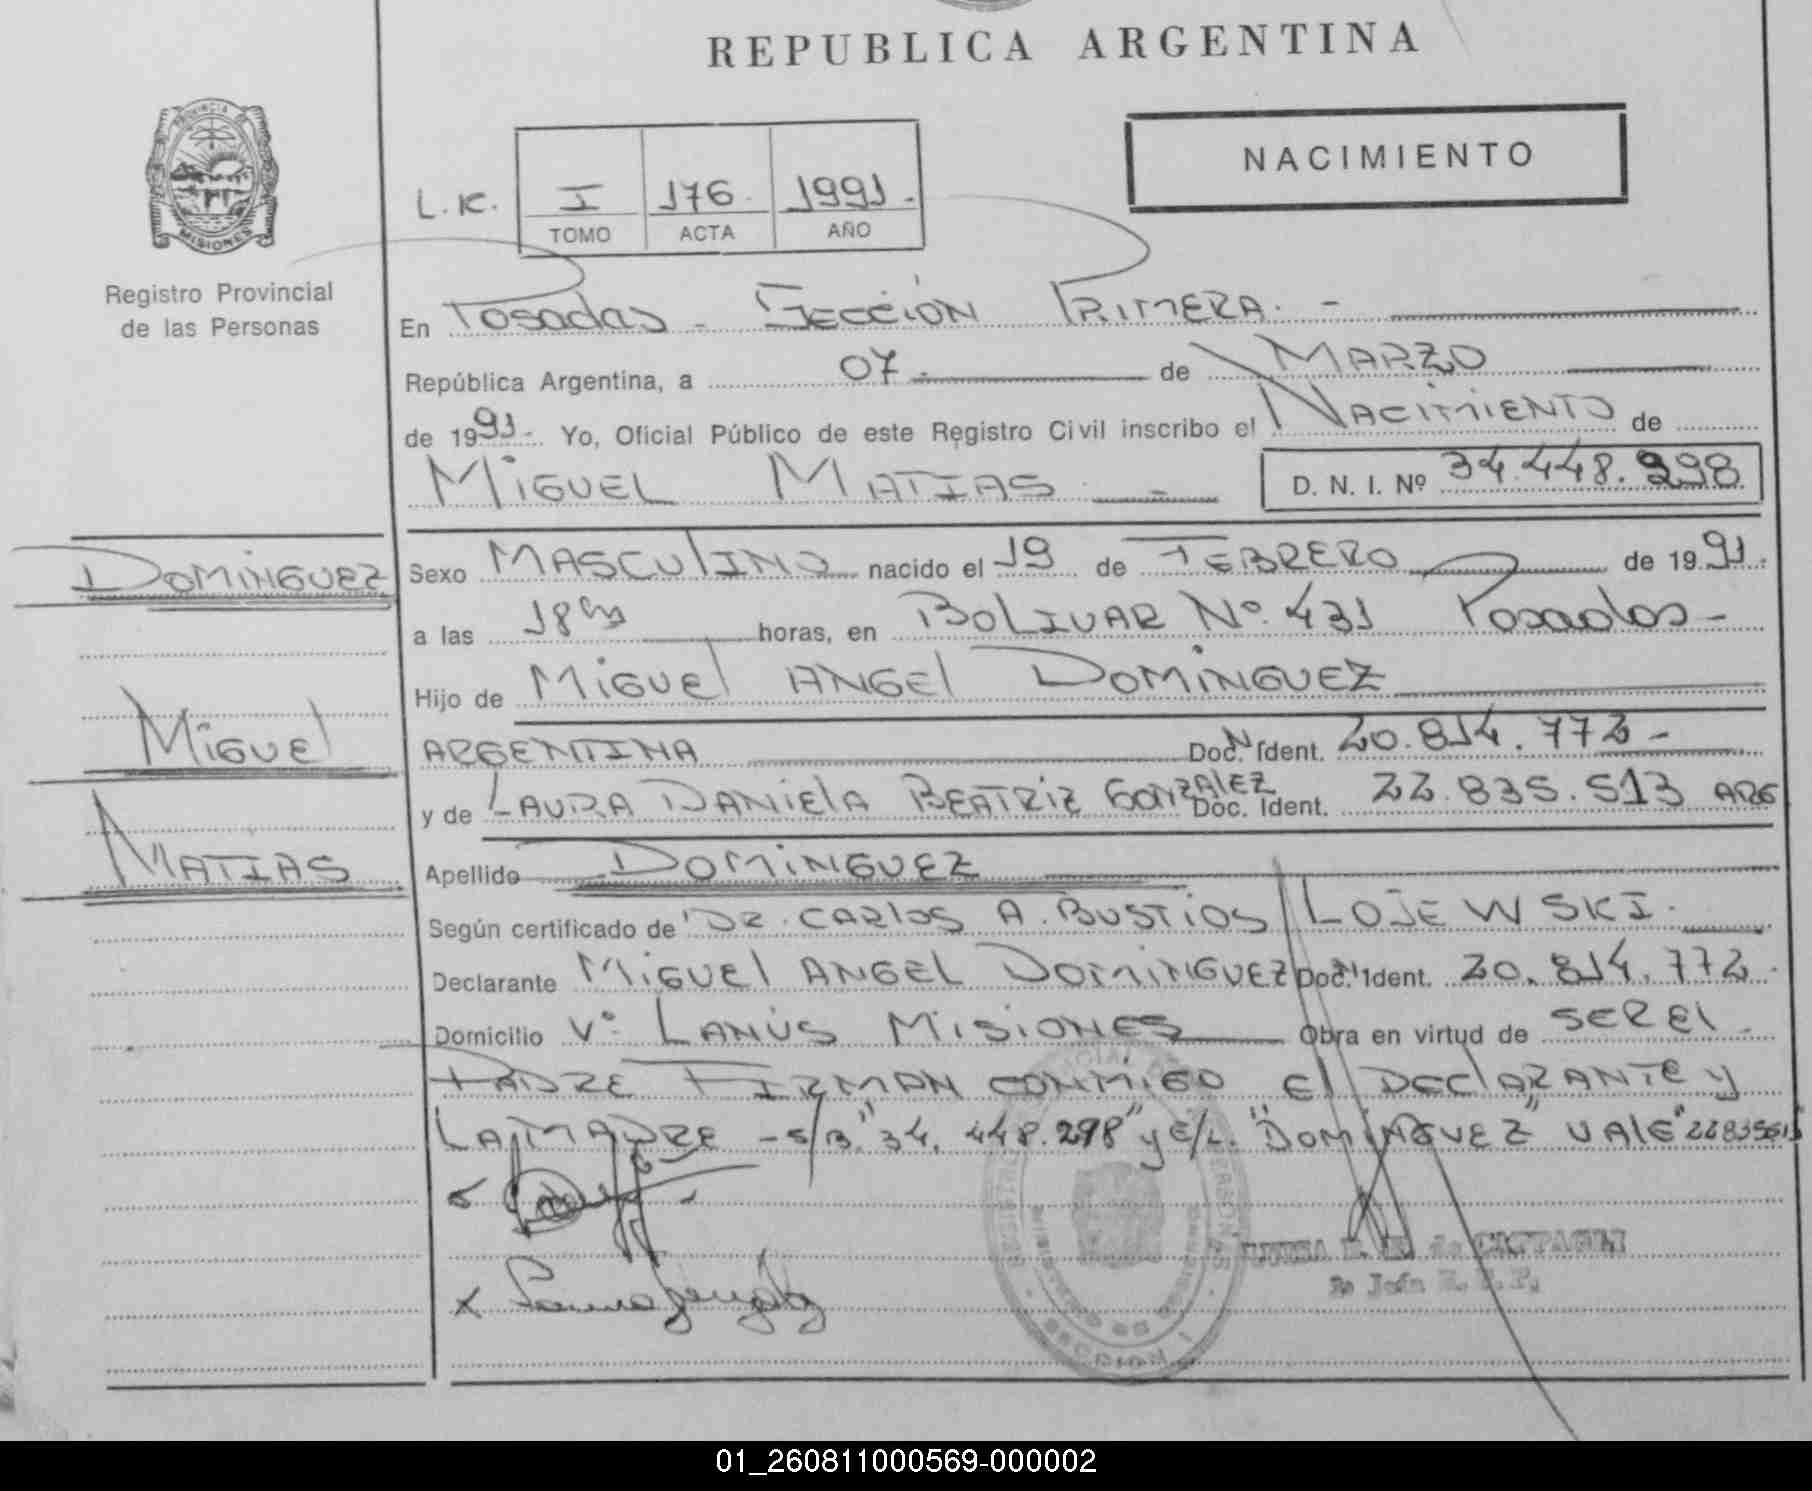 REPUBLICA ARGENTINA
NACIMIENTO
L.K. I 176. 1991.
TOMO ACTA AÑO
PROVINCIA DE
MISIONES
Registro Provincial
de las Personas
En Posadas - SECCIÓN PRIMERA. -
República Argentina, a 07. de MARZO
de 1991- Yo, Oficial Público de este Registro Civil inscribo el NACIMIENTO de
MIGUEL MATIAS D. N. I. Nº 34.448.298
DOMINGUEZ
MIGUEL
MATIAS
Sexo MASCULINO nacido el 19 de FEBRERO de 1991.
a las 18 horas, en BOLIVAR Nº 431 Posadas -
Hijo de MIGUEL ANGEL DOMINGUEZ
ARGENTINA Doc. Ident. 20.814.772 -
y de LAURA DANIELA BEATRIZ GONZALEZ Doc. Ident. 22.835.513 ARG
Apellido DOMINGUEZ
Según certificado de DR. CARLOS A. BUSTIOS / LOJEWSKI.
Declarante MIGUEL ANGEL DOMINGUEZ Doc. Ident. 20.814.772 -
Domicilio Vº LANÚS MISIONES Obra en virtud de SER EL
PADRE FIRMAN CONMIGO EL DECLARANTE y
LA MADRE - S/B "34.448.298" y E/L. "DOMINGUEZ" VALE
SECCION I
01_260811000569-000002